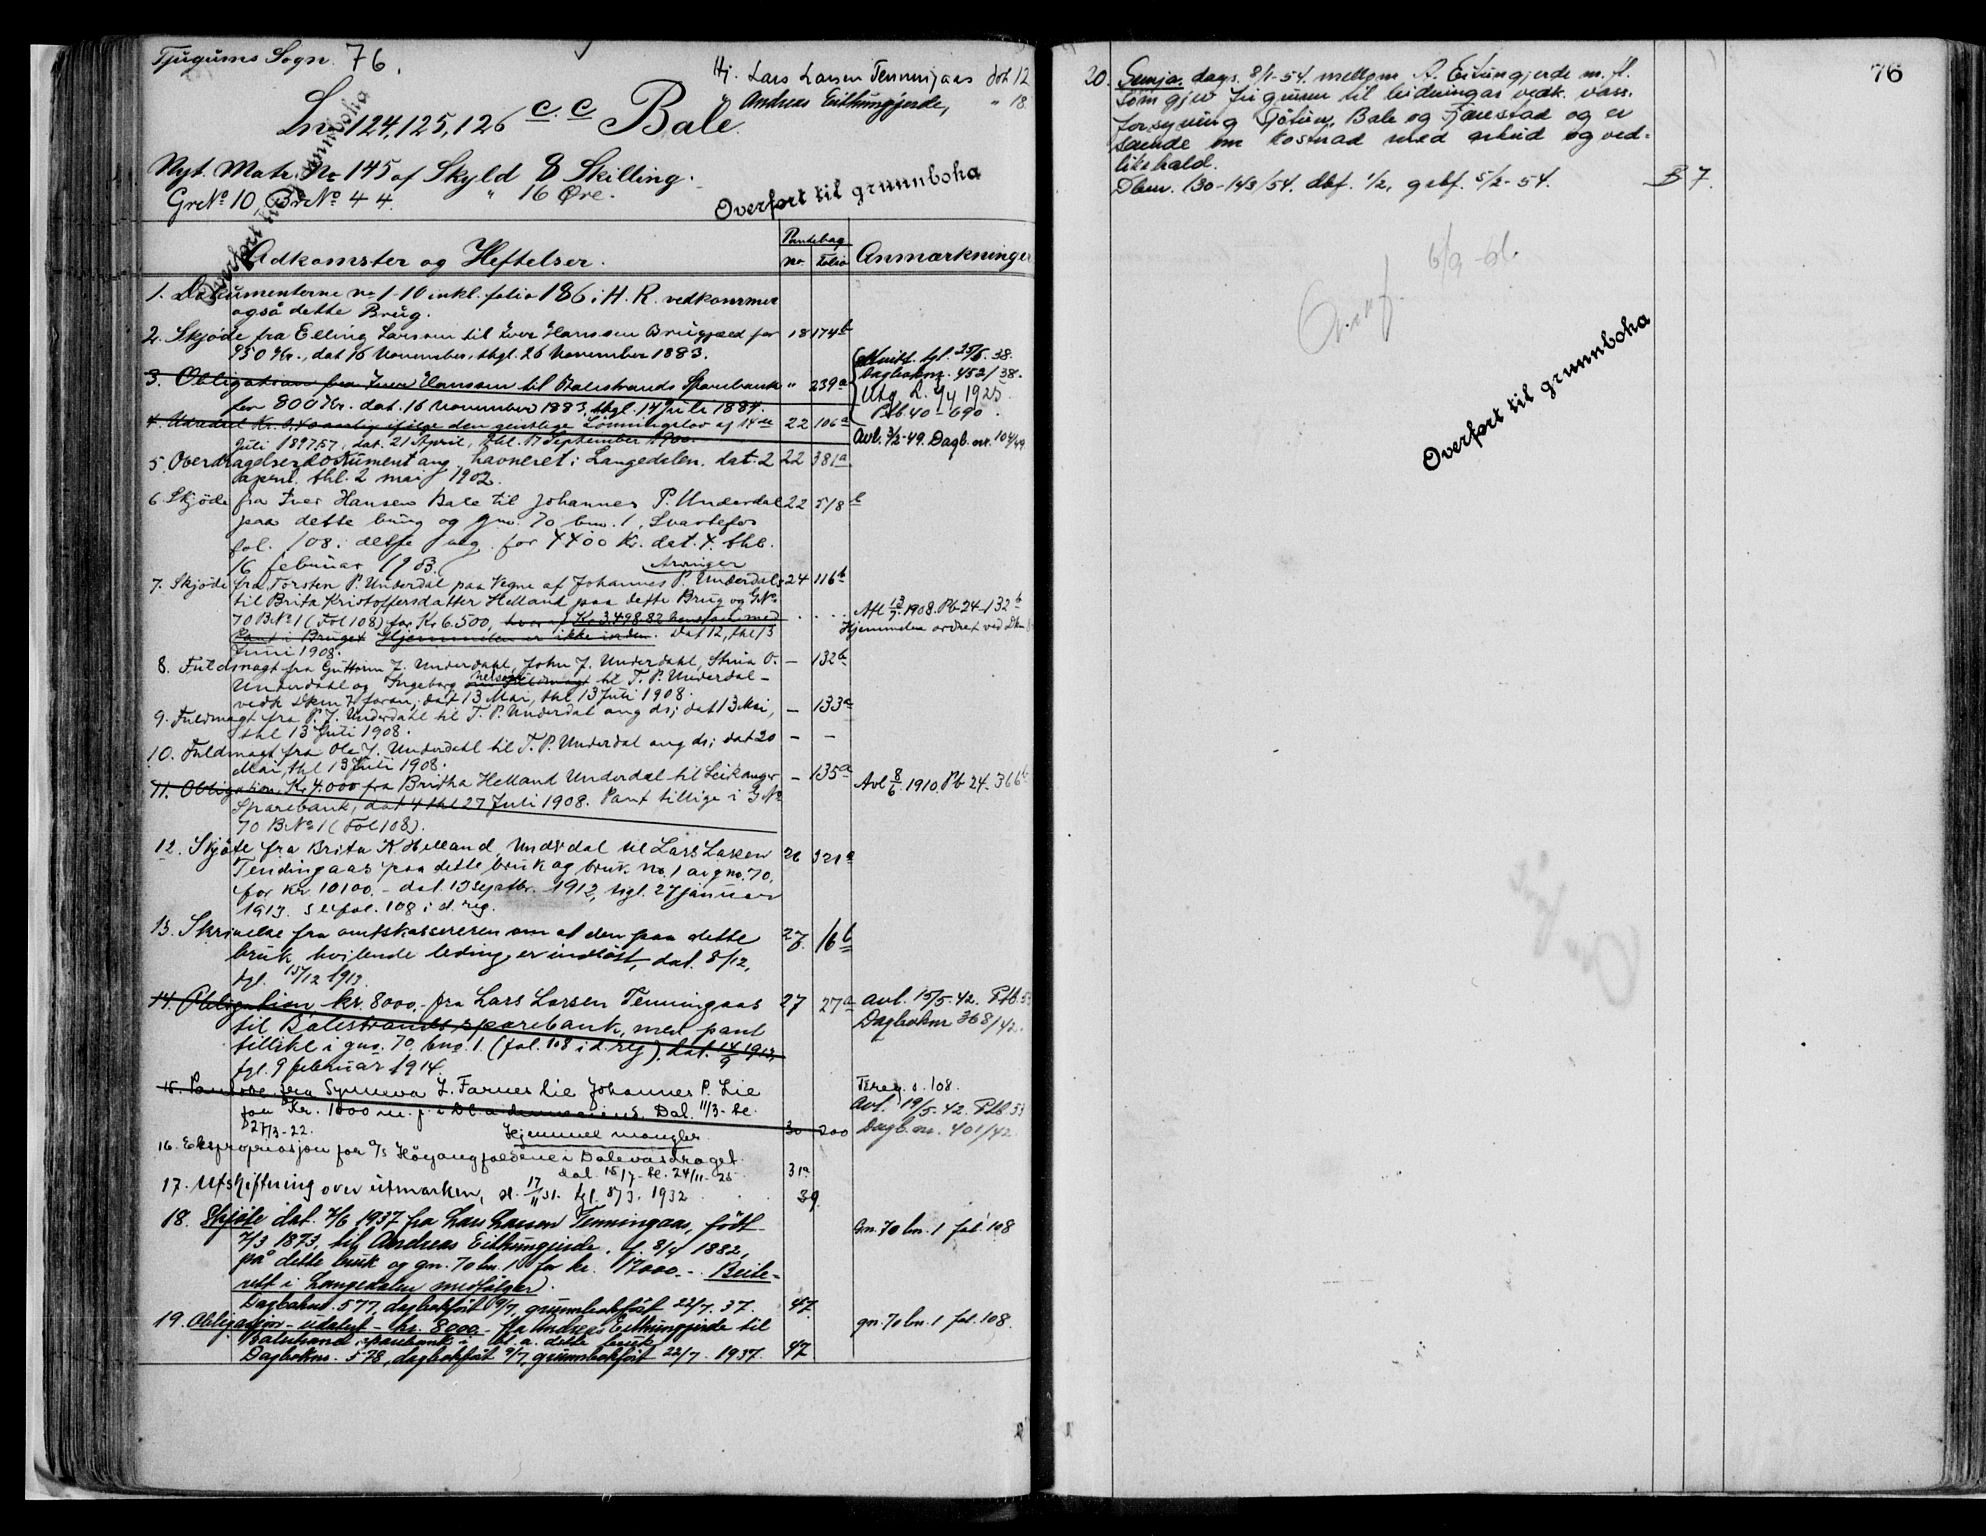 Tjugums Sogn. 76.
Hj. Lars Larsen Tenningaas dok 12
" Andreas Eithungjerde, " 18
Ln. 124, 125, 126 c.c. Bale.
Nyt. Matr. No 145 af Skyld 8 Skilling.
GrNo 10 BrNo 44. " 16 Øre.
Overført til grunnboka
Overført til grunnboka
Adkomster og Heftelser.
Pantebog
No. Folio
Anmærkninger
1. Dokumenterne no 1-10 inkl. folio 186 i H. R. vedkommer
også dette Brug.
2. Skjøde fra Elling Larsen til Iver Hanssen Brugjæld for 18 174b
950 Kr., dat 16 November, thgl. 26 November 1883.
3. Obligation fra Iver Hanssen til Balestrands Sparebank " 239a
for 800 Kr. dat. 16 November 1883, thgl. 14 Juli 1884.
Kvitt. tgl. 25/5. 38.
Dagboknr. 452/38.
Utg. L. 4/4 1925.
Pb 40-690.
4. Udredsel Kr. 0,40 aarlig ifølge den geistlige Lønningslov af 14de 22 106a
Juli 1897 § 7, dat. 21 April, thl. 17 September 1900.
Avl. 3/2-49. Dagb. nr. 104/49
5. Overdragelsesdokument ang. havneret i Langedalen. dat. 2 22 381a
april. thl. 2 mai 1902.
6 Skjöde fra Iver Hansen Bale til Johannes P. Underdal 22 518b
paa dette brug og gno. 70 bno. 1, Svartefos
fol. 108 i dette reg. for 4400 Kr. dat. 4. thl.
16 februar 1903.
Arvinger
7. Skjöde fra Torsten P. Underdal paa Vegne af Johannes P. Underdals 24 116b
til Brita Kristoffersdatter Helland paa dette Brug og GNo
70 BNo 1 (Fol 108) for Kr 6.500, hvoraf Kr 3.498.82 henstaar med
Pant i Bruget Hjemmelen er ikke i orden. Dat 12, thl 13
Juni 1908.
Afl 13/7. 1908. Pb 24-132b
Hjemmelen ordnet ved Dkm 8
8. Fuldmagt fra Guttorm J. Underdahl, John J. Underdahl, Stina O. — 132b
Underdahl og Ingeborg Nelson til T. P. Underdal —
vedk Dkm 7 foran; dat 13 Mai, thl 13 Juli 1908.
9. Fuldmagt fra P. J. Underdahl til T. P. Underdal ang ds; dat 13 Mai, — 133a
thl 13 Juli 1908.
10. Fuldmagt fra Ole J. Underdahl til T. P. Underdal ang ds; dat 20 — —
Mai, thl 13 Juli 1908.
11. Obligation Kr 4.000 fra Britha Helland Underdal til Leikanger — 135a
Sparebank, dat 4 thl 27 Juli 1908. Pant tillige i GNo
70 BNo 1 (Fol 108).
Avl 8/6. 1910. Pb 24. 366b
12. Skjøte fra Brita K Helland, Underdal til Lars Larsen 26 321a
Tendingaas paa dette bruk og bruk no. 1 av gno. 70,
for kr 10100.- dat. 13 septbr. 1912, tgl. 27 januar
1913. Se fol. 108 i d. reg.
13. Skrivelse fra amtskassereren om at den paa dette 27. 16b
bruk hvilende leding er indløst, dat. 8/12,
tgl. 15/12 1913
14. Obligation, kr. 8000,- fra Lars Larsen Tenningaas 27 27a
til Balestrands sparebank, med pant
tillike i gno. 70, bno. 1. (fol. 108 i d. reg), dat. 14/9 1913,
tgl. 9 februar 1914.
avl. 15/5-42. Ptb. 53
Dagboknr 368/42.
15. Pantobl. fra Synneva L. Farnes lie Johannes P. Lie
for Kr. 1600 m. p. i bl. a. denne eiend. Dat. 11/3- tl.
27/3-22. Hjemmel mangler. 30 200
Tereg. s. 108.
Avl. 19/5-42. Ptb. 53
Dagb. nr. 401/42.
16. Ekspropriasjon for a/s Höyangfaldene i Dalevasdraget.
dat 15/7- tl. 24/11-25 31a
17. Utskiftning over utmarken, sl. 17/11 31. tgl. 8/3. 1932 39
18. Skjøte dat. 4/6 1937 fra Lars Larsen Tenningaas, født
4/3 1873, til Andreas Eithungjerde, f. 8/4 1882,
på dette bruk og gn. 70 bn. 1 for kr. 17000.- Beite-
rett i Langedalen medfølger.
Dagboknr. 577, dagbokført 9/7, grunnbokført 22/7. 37. 47.
gn. 70 bn. 1 fol. 108
19. Obligasjon - udelegt - kr. 8000 fra Andreas Eithungjerde til
Balestrand sparebank i bl. a. dette bruk
Dagboknr. 578, dagbokført 9/7, grunnbokført 22/7. 1937. 47
gn. 70 bn. 1 fol. 108.
76
20. Semja dags. 8/1-54. mellom A. Eitungjerde m. fl.
som gjev fri grunn til leidningar vedk. vass-
forsyning Sjøtun, Bale og Farestad og er
samde om kostnad med arbeid og ved-
likehald.
Dbnr. 130-143/54. dbf. 1/2, grbf. 5/2-54. B 7.
6/9-61.
Overført til grunnboka